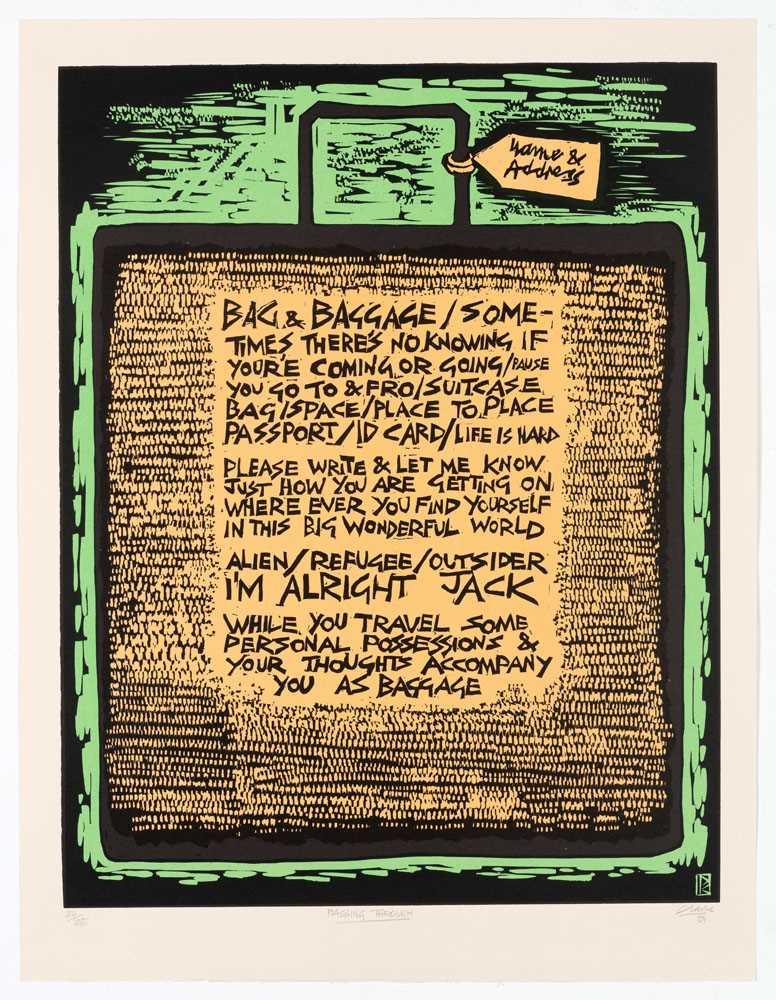 Name &
Address
BAG & BAGGAGE / SOME-
TIMES THERE'S NO KNOWING IF
YOUR'E COMING OR GOING/PAUSE
YOU GO TO & FRO/SUITCASE
BAG/SPACE/PLACE TO PLACE
PASSPORT/ID CARD/LIFE IS HARD
PLEASE WRITE & LET ME KNOW
JUST HOW YOU ARE GETTING ON
WHERE EVER YOU FIND YOURSELF
IN THIS BIG WONDERFUL WORLD
ALIEN/REFUGEE/OUTSIDER
I'M ALRIGHT JACK
WHILE YOU TRAVEL SOME
PERSONAL POSSESSIONS &
YOUR THOUGHTS ACCOMPANY
YOU AS BAGGAGE
PASSING THROUGH